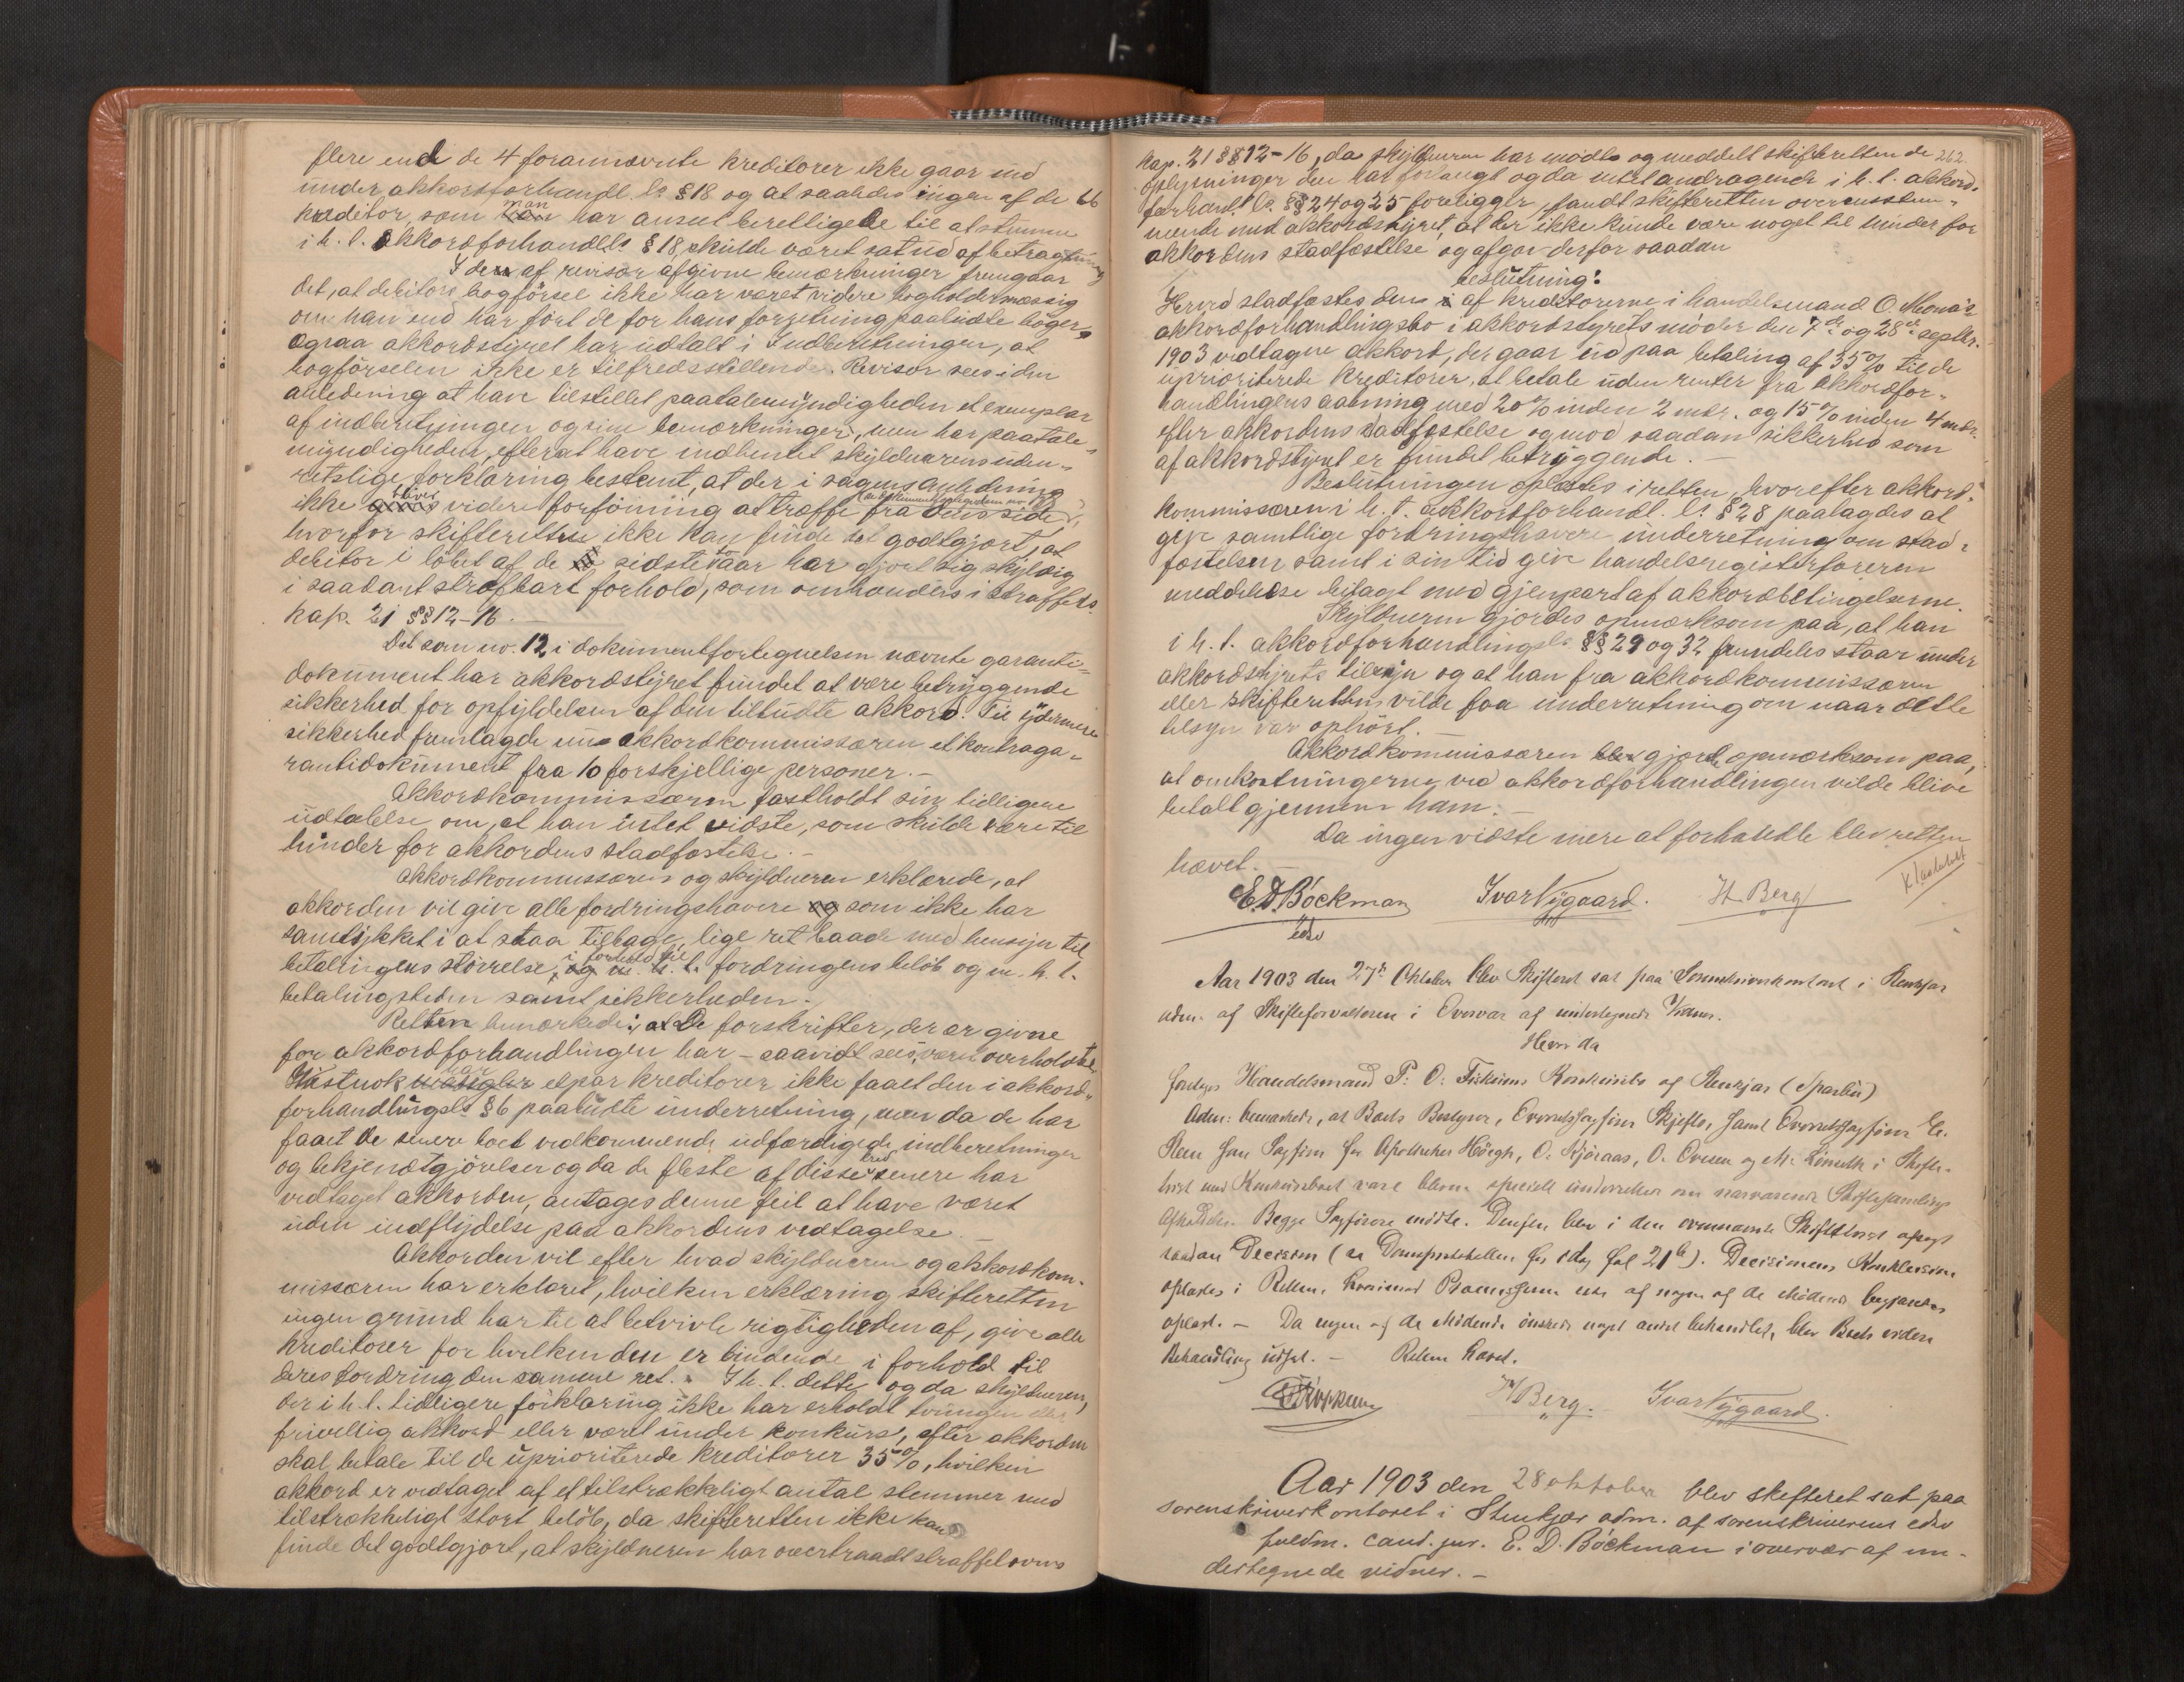 flere end de 4 forannævnte kreditorer ikke gaar ind
under akkordforhandl. ls § 18 og at saaledes ingen af de 66
kreditor, som man har anseet berettigede til at stemme
i h. t. akkordforhandlls § 18, skulde været sat ud af betragtning
I den af revisor afgivne bemærkninger fremgaar
det, at debitors bogførsel ikke har været videre bogholdermæssig
om han end har ført de for hans forretning paabudte bøger,
ogsaa akkordstyret har udtalt i Indberetningen, at
bogførselen ikke er tilfredsstillende. Revisor sees i den
anledning at have tilstillet paatalemyndigheden et exemplar
af indberetningen og sine bemærkninger, men har paatale-
myndigheden, efterat have indhentet skyldnerens uden-
retslige forklaring bestemt, at der i sagens anledning
ikke bliver videre forføining at træffe fra dens side
hvorfor skifteretten ikke kan finde det godtgjort, at
debitor i løbet af de sidste aar har gjort sig skyldig
i saadant strafbart forhold, som omhandles i straffels
kap. 21 §§ 12-16.
Det som no. 12 i dokumentfortegnelsen nævnte garanti-
dokument har akkordstyret fundet at være betryggende
sikkerhed for opfyldelsen af den tilbudte akkord. Til ydermere
sikkerhed fremlagde akkordkommissæren et kontraga-
rantidokument fra 10 forskjellige personer. -
Akkordkommissæren fastholdt sin tidligere
udtalelse om, at han intet vidste, som skulde være til
hinder for akkordens stadfæstelse. -
Akkordkommissæren og skyldneren erklærede, at
akkorden vil give alle fordringshavere og som ikke har
samtykket i at staa tilbage, lige ret baade med hensyn til
betalingens størrelse, i forhold til fordringens beløb og m. h. t.
betalingstiden samt sikkerheden.
Retten bemærkede: at De forskrifter, der er givne
for akkordforhandlingen har - saavidt sees, været overholdte
Vistnok har etpar kreditorer ikke faaet den i akkord-
forhandlingsls § 6 paabudte underretning, men da de har
faaet de senere boet vedkommende udfærdigede indberetninger
og bekjendtgjørelser og da de fleste af disse kred. senere har
vedtaget akkorden, antages denne feil at have været
uden indflydelse paa akkordens vedtagelse. -
Akkorden vil efter hvad skyldneren og akkordkom-
missæren har erklæret, hvilken erklæring skifteretten
ingen grund har til at betvivle rigtigheden af, give alle
kreditorer for hvilken den er bindende i forhold til
deres fordring den samme ret. I h. t. dette og da skyldneren,
der i h. t. tidligere forklaring ikke har erholdt tvungen eller
frivillig akkord eller været under konkurs, efter akkorden
skal betale til de uprioriterede kreditorer 35%, hvilken
akkord er vedtaget af et tilstrækkeligt antal stemmer med
tilstrækkeligt stort beløb, da skifteretten ikke kan
finde det godtgjort, at skyldneren har overtraadt straffelovens
262.
Kap. 21 §§ 12-16, da skyldneren har mødt og meddelt skifteretten de
oplysninger den har forlangt og da intet andragende i h. t. akkord-
forhandl. ls. §§ 24 og 25 foreligger, fandt skifteretten overensstem-
mende med akkordstyret, at der ikke kunde være noget til hinder for
akkordens stadfæstelse og afgav derfor saadan
beslutning:
Herved stadfæstes den af kreditorerne i handelsmand O. Mona's
akkordforhandlingsbo i akkordstyrets møder den 7de og 28de septbr.
1903 vedtagne akkord, der gaar ud paa betaling af 35% til de
uprioriterede kreditorer, at betale uden renter fra akkordfor-
handlingens aabning med 20% inden 2 mdr. og 15% inden 4 mdr.
efter akkordens stadfæstelse og mod saadan sikkerhed som
af akkordstyret er fundet betryggende. -
Beslutningen oplæstes i retten, hvorefter akkord-
kommissæren i h. t. akkordforhandl. ls § 28 paalagdes at
give samtlige fordringshavere underretning om stad-
fæstelsen samt i sin tid give handelsregisterføreren
meddelelse bilagt med gjenpart af akkordbetingelserne.
Skyldneren gjordes opmærksom paa, at han
i h. t. akkordforhandlingsls §§ 29 og 32 fremdeles staar under
akkordstyrets tilsyn og at han fra akkordkommissæren
eller skifteretten vilde faa underretning om naar dette
tilsyn var ophørt.
Akkordkommissæren gjordes opmærksom paa,
at omkostningerne ved akkordforhandlingen vilde blive
betalt gjennem ham. -
Da ingen vidste mere at forhandle blev retten
hævet. -
E. D. Bøckman Ivar Nygaard. H. Berg
edsv
Aar 1903 den 27de Oktober blev Skifteret sat paa Sorenskriverkontoret i Stenkjær
adm. af Skifteforvalteren i Overvær af undertegnede Vidner.
Hvorda
foretoges Handelsmand P. O. Konkursbo af Stenkjær (Sparbu)
Adm: bemærkede, at Boets Bestyrer, Overretssagfører Skjefte, samt Overretssagfører
Steen som Sagfører for Apotheker Höegh, O. Kjøraas, O. Ovesen og M. i Skifte-
tvist med Konkursboet vare blevne specielt underrettet om nærværende Skiftesamlings
Afholdelse. Begge Sagførere mødte. Derefter blev i den ovennævnte Skiftetvist afsagt
saadan Decision (se Domsprotokollen for idag fol 21). Decisionens Konklusion
oplæstes i Retten, hvorimod Præmisserne ikke af nogen af de Mødende begjæredes
oplæst. - Da ingen af de Mødende ønskede noget andet behandlet, blev Boets videre
Behandling udsat. - Retten hævet.
H Berg. Ivar Nygaard.
Aar 1903 den 28 oktober blev skifteret sat paa
sorenskriverkontoret i Stenkjær adm. af sorenskriverens edsv
fuldm. cand. jur. E. D. Bøckman i overvær af un-
dertegnede vidner. -